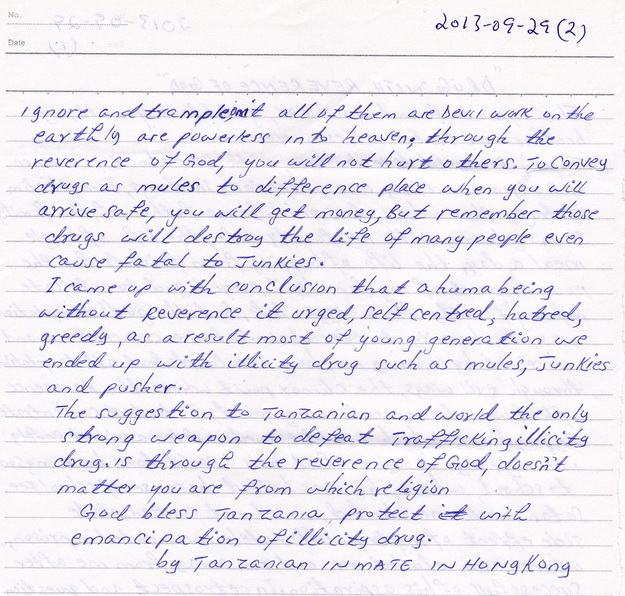 No.
2013-09-29(2)
Date
ignore and trample on it all of them are Devil work on the
earthly are powerless into heaven, through the
reverence of God, you will not hurt others. To convey
drugs as mules to difference place when you will
arrive safe, you will get money, But remember those
drugs will destroy the life of many people even
cause fatal to Junkies.
I came up with conclusion that a huma being
without Reverence it urged, self centred, hatred,
greedy, as a result most of young generation we
ended up with illicity drug such as mules, Junkies
and pusher.
The suggestion to Tanzanian and world the only
strong weapon to defeat Trafficking illicity
drug. is through the reverence of God, doesn't
matter you are from which religion
God bless Tanzania, protect it with
emancipation of illicity drug.
by Tanzanian INMATE IN HONGKONG